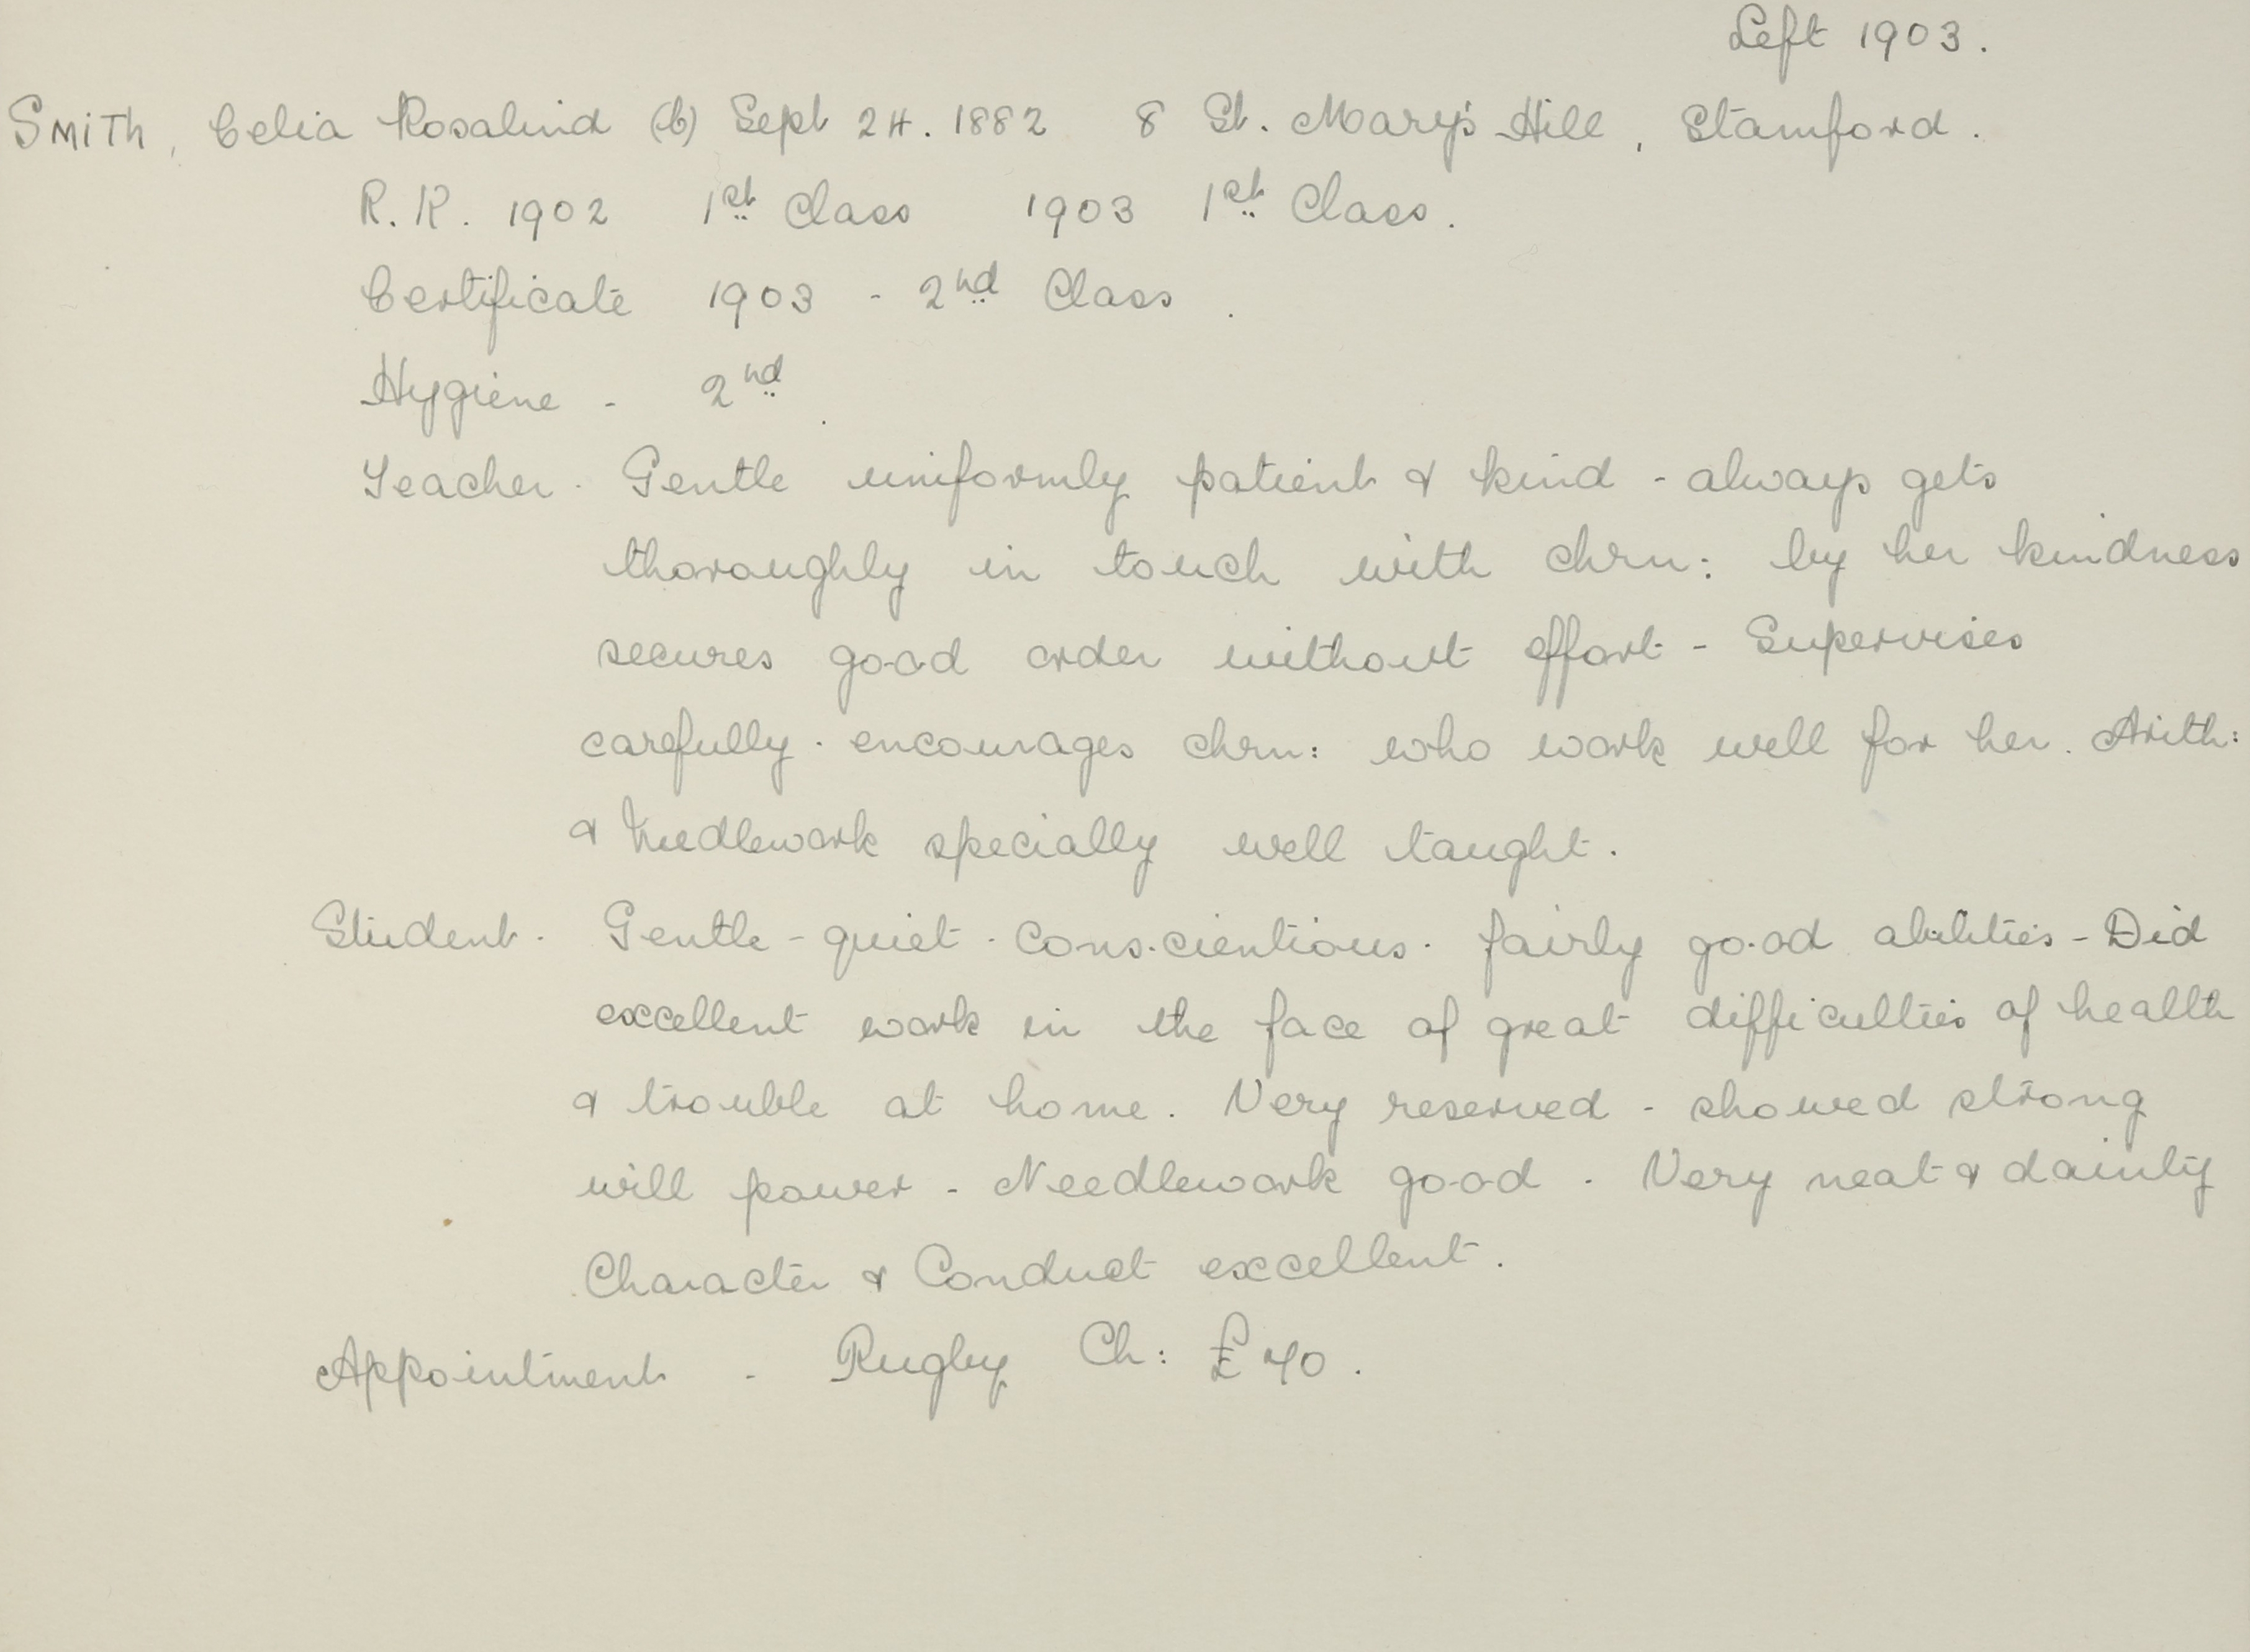 Left 1903.
SMITH, Celia Rosalind (b) Sept 24. 1882 8 St. Mary's Hill, Stamford.
R.K. 1902 1st Class 1903 1st Class.
Certificate 1903 - 2nd Class.
Hygiene - 2nd.
Teacher - Gentle uniformly patient & kind - always gets
thoroughly in touch with chrn: by her kindness
secures good order without effort - Supervises
carefully - encourages chrn: who work well for her. Arith:
& Needlework specially well taught.
Student - Gentle - quiet - conscientious - fairly good abilities - Did
excellent work in the face of great difficulties of health
& trouble at home. Very reserved - showed strong
will power - Needlework good - Very neat & dainty
Character & Conduct excellent.
Appointment - Rugby Ch: £40.